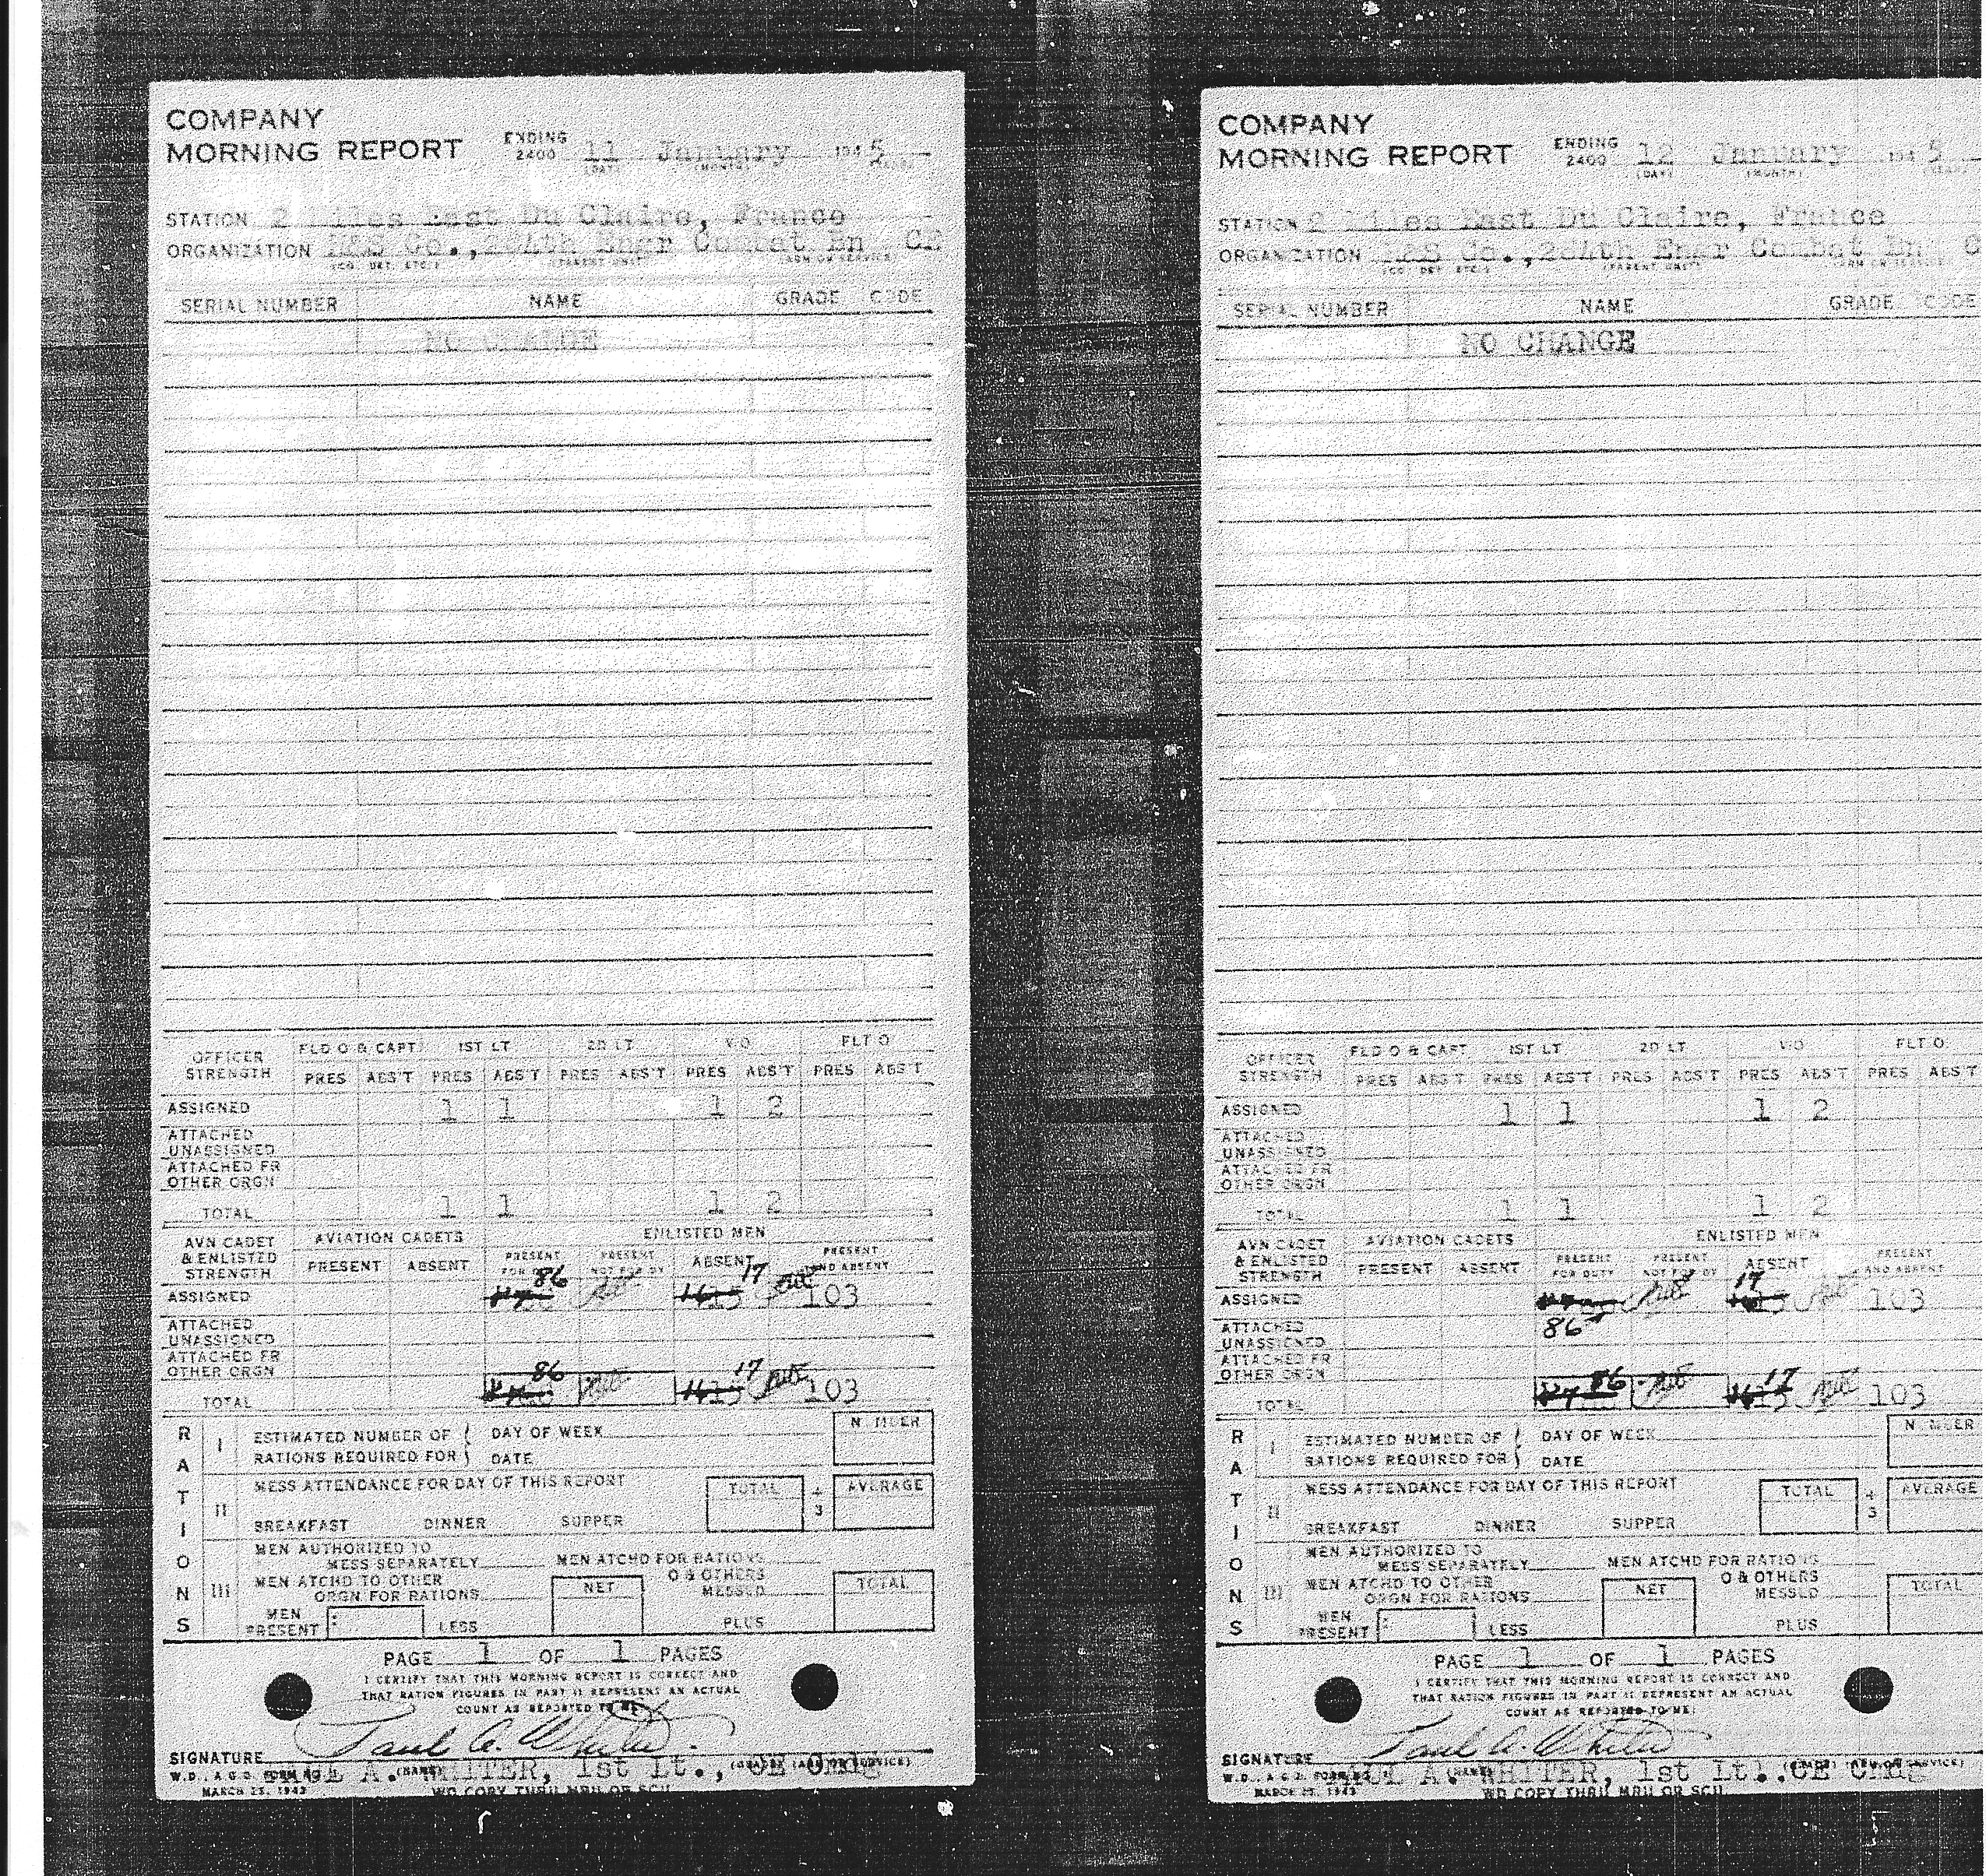 COMPANY
MORNING REPORT ENDING 2400 11 January 1945
(DAY) (MONTH)
STATION 2 Miles East Du Claire, France
ORGANIZATION H&S Co., 284th Engr Combat Bn CE
(CO. DET. ETC.) (PARENT UNIT) (ARM OR SERVICE)
SERIAL NUMBER NAME GRADE CODE
NO CHANGE
OFFICER STRENGTH FLD O & CAPT 1ST LT 2D LT W O FLT O
PRES ABS'T PRES ABS'T PRES ABS'T PRES ABS'T PRES ABS'T
ASSIGNED 1 1 1 2
ATTACHED UNASSIGNED
ATTACHED FR OTHER ORGN
TOTAL 1 1 1 2
AVN CADET & ENLISTED STRENGTH AVIATION CADETS ENLISTED MEN
PRESENT ABSENT PRESENT FOR DUTY PRESENT NOT FOR DY ABSENT PRESENT AND ABSENT
ASSIGNED 86 17 103
ATTACHED UNASSIGNED
ATTACHED FR OTHER ORGN
TOTAL 86 17 103
RATIONS
I ESTIMATED NUMBER OF RATIONS REQUIRED FOR { DAY OF WEEK
DATE
NUMBER
II MESS ATTENDANCE FOR DAY OF THIS REPORT TOTAL ÷ 3 AVERAGE
BREAKFAST DINNER SUPPER
III MEN AUTHORIZED TO MESS SEPARATELY MEN ATCHD FOR RATIONS
MEN ATCHD TO OTHER ORGN FOR RATIONS NET O & OTHERS MESSED TOTAL
MEN PRESENT LESS PLUS
PAGE 1 OF 1 PAGES
I CERTIFY THAT THIS MORNING REPORT IS CORRECT AND
THAT RATION FIGURES IN PART II REPRESENT AN ACTUAL
COUNT AS REPORTED TO ME:
Paul A. Whiter
SIGNATURE
PAUL A. WHITER, 1st Lt., CE Cmdg
(NAME) (GRADE) (ARM OR SERVICE)
W.D., A.G.O. FORM NO. 1
MARCH 23, 1943
WD COPY THRU MRU OR SCU
COMPANY
MORNING REPORT ENDING 2400 12 January 1945
(DAY) (MONTH)
STATION 2 Miles East Du Claire, France
ORGANIZATION H&S Co., 284th Engr Combat Bn C
(CO. DET. ETC.) (PARENT UNIT) (ARM OR SERVICE)
SERIAL NUMBER NAME GRADE CODE
NO CHANGE
OFFICER STRENGTH FLD O & CAPT 1ST LT 2D LT W O FLT O
PRES ABS'T PRES ABS'T PRES ABS'T PRES ABS'T PRES ABS'T
ASSIGNED 1 1 1 2
ATTACHED UNASSIGNED
ATTACHED FR OTHER ORGN
TOTAL 1 1 1 2
AVN CADET & ENLISTED STRENGTH AVIATION CADETS ENLISTED MEN
PRESENT ABSENT PRESENT FOR DUTY PRESENT NOT FOR DY ABSENT PRESENT AND ABSENT
ASSIGNED 17 103
ATTACHED UNASSIGNED 86
ATTACHED FR OTHER ORGN
TOTAL 86 17 103
RATIONS
I ESTIMATED NUMBER OF RATIONS REQUIRED FOR { DAY OF WEEK
DATE
NUMBER
II MESS ATTENDANCE FOR DAY OF THIS REPORT TOTAL ÷ 3 AVERAGE
BREAKFAST DINNER SUPPER
III MEN AUTHORIZED TO MESS SEPARATELY MEN ATCHD FOR RATIONS
MEN ATCHD TO OTHER ORGN FOR RATIONS NET O & OTHERS MESSED TOTAL
MEN PRESENT LESS PLUS
PAGE 1 OF 1 PAGES
I CERTIFY THAT THIS MORNING REPORT IS CORRECT AND
THAT RATION FIGURES IN PART II REPRESENT AN ACTUAL
COUNT AS REPORTED TO ME:
Paul A. Whiter
SIGNATURE
PAUL A. WHITER, 1st Lt., CE Cmdg
(NAME) (GRADE) (ARM OR SERVICE)
W.D., A.G.O. FORM NO. 1
MARCH 23, 1943
WD COPY THRU MRU OR SCU